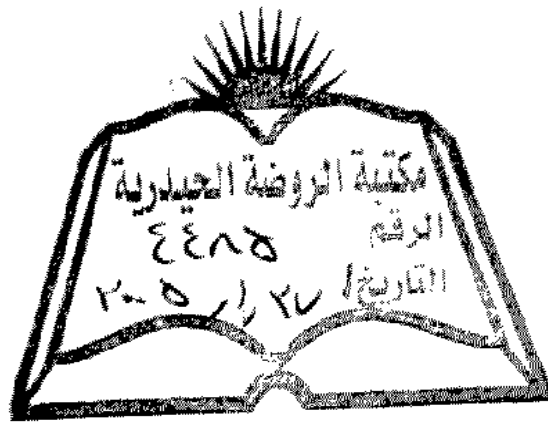 مكتبة الروضة الحيدرية
الرقم ٤٤٨٥
التاريخ / ٢٧ ٢٠٠٥